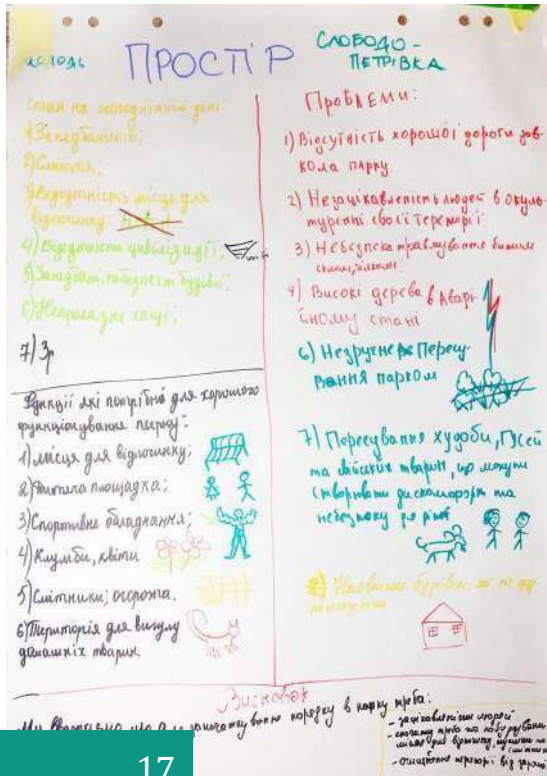 ПРОСТІР
СЛОБОДО-
ПЕТРІВКА
Стан на сьогоднішній день:
1) Занедбаність;
2) Сміття;
3) Відсутність місць для
відпочинку
4) Відсутність цивілізації;
5) Занедбані, небезпечні будівлі;
6) Непролазні хащі;
7) Зр
Функції які потрібні для хорошого
функціонування парку:
1) місця для відпочинку;
2) Дитяча площадка;
3) Спортивне обладнання;
4) Клумби, квіти
5) Смітники; огорожа.
6) Територія для вигулу
домашніх тварин.
Проблеми:
1) Відсутність хорошої дороги нав-
кола парку.
2) Незацікавленість людей в окуль-
туренні своєї територіі
3) Небезпека травмування битим
склом,
4) Високі дерева в Аварі-
йному стані
6) Незручне Пересу-
вання парком
7) Пересування худоби, гусей
та свійських тварин, що можуть
створювати дискомфорт та
небезпеку
Висновок
Ми вважаємо що для започаткування порядку в парку треба:
- зацікавленість людей
17